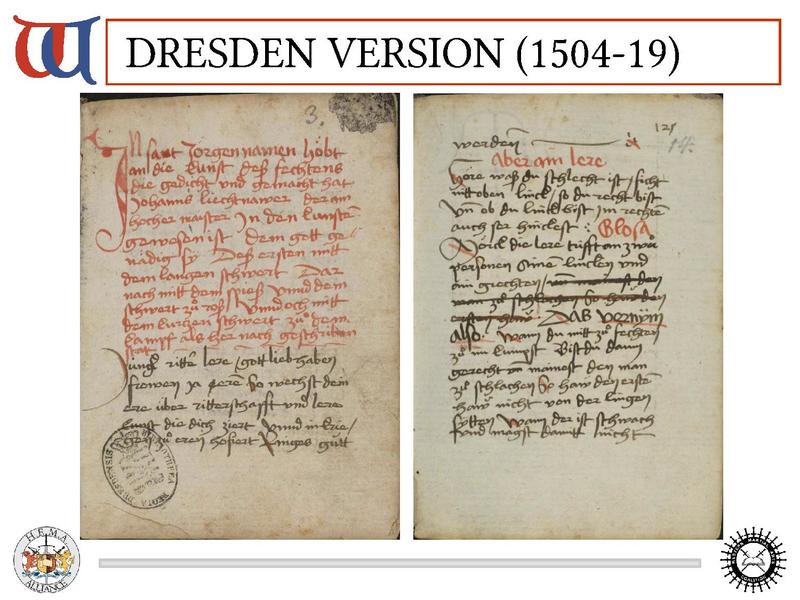 DRESDEN VERSION (1504-19)
3.
In sant Jorgen namen höbt
an die kunst deß fechtens
die gedicht und gemacht hat
Johanns liechtnawer der ain
hocher maister In den künsten
gewesen ist dem gott ge-
nädig sÿ Deß ersten mitt
dem langen schwert Dar
nach mitt dem spieß Vnnd dem
schwert zü roß Vnnd och mitt
dem kurtzen schwert zü dem
kampf als her nach geschriben
stat
Jungk ritter lere / gott lieb haben
frowen Ja gere So wechst dein
ere über ritterschafft und lere
kunst die dich ziert Vnnd in krie/
gen zü eren hofiert Ringes gütt
121
werden
Aber ain lere
Höre waß da schlecht ist / ficht
nitt oben linck so du recht bist
Vn ob du linck bist im rechten
auch ser hinckest : Glosa
Mörck die lere trifft an zwü
personen Eine lincken und
ain gerechten /
DAß vernÿm
also. wann du mitt zü fechten
zü im kumpst Bist du dann
gerecht mainest den man
zü schlachen So haw den ersten
haw nicht von der lingen
sÿtten Wann der ist schwach
Vnd magst damitt nicht
H.E.M.A.
ALLIANCE